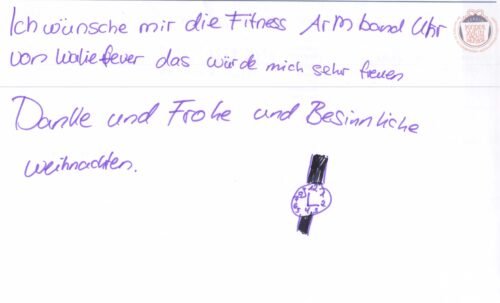 Ich wünsche mir die Fitness Armband Uhr
von Waliefever das würde mich sehr freuen
Danke und Frohe und Besinnliche
weihnachten.